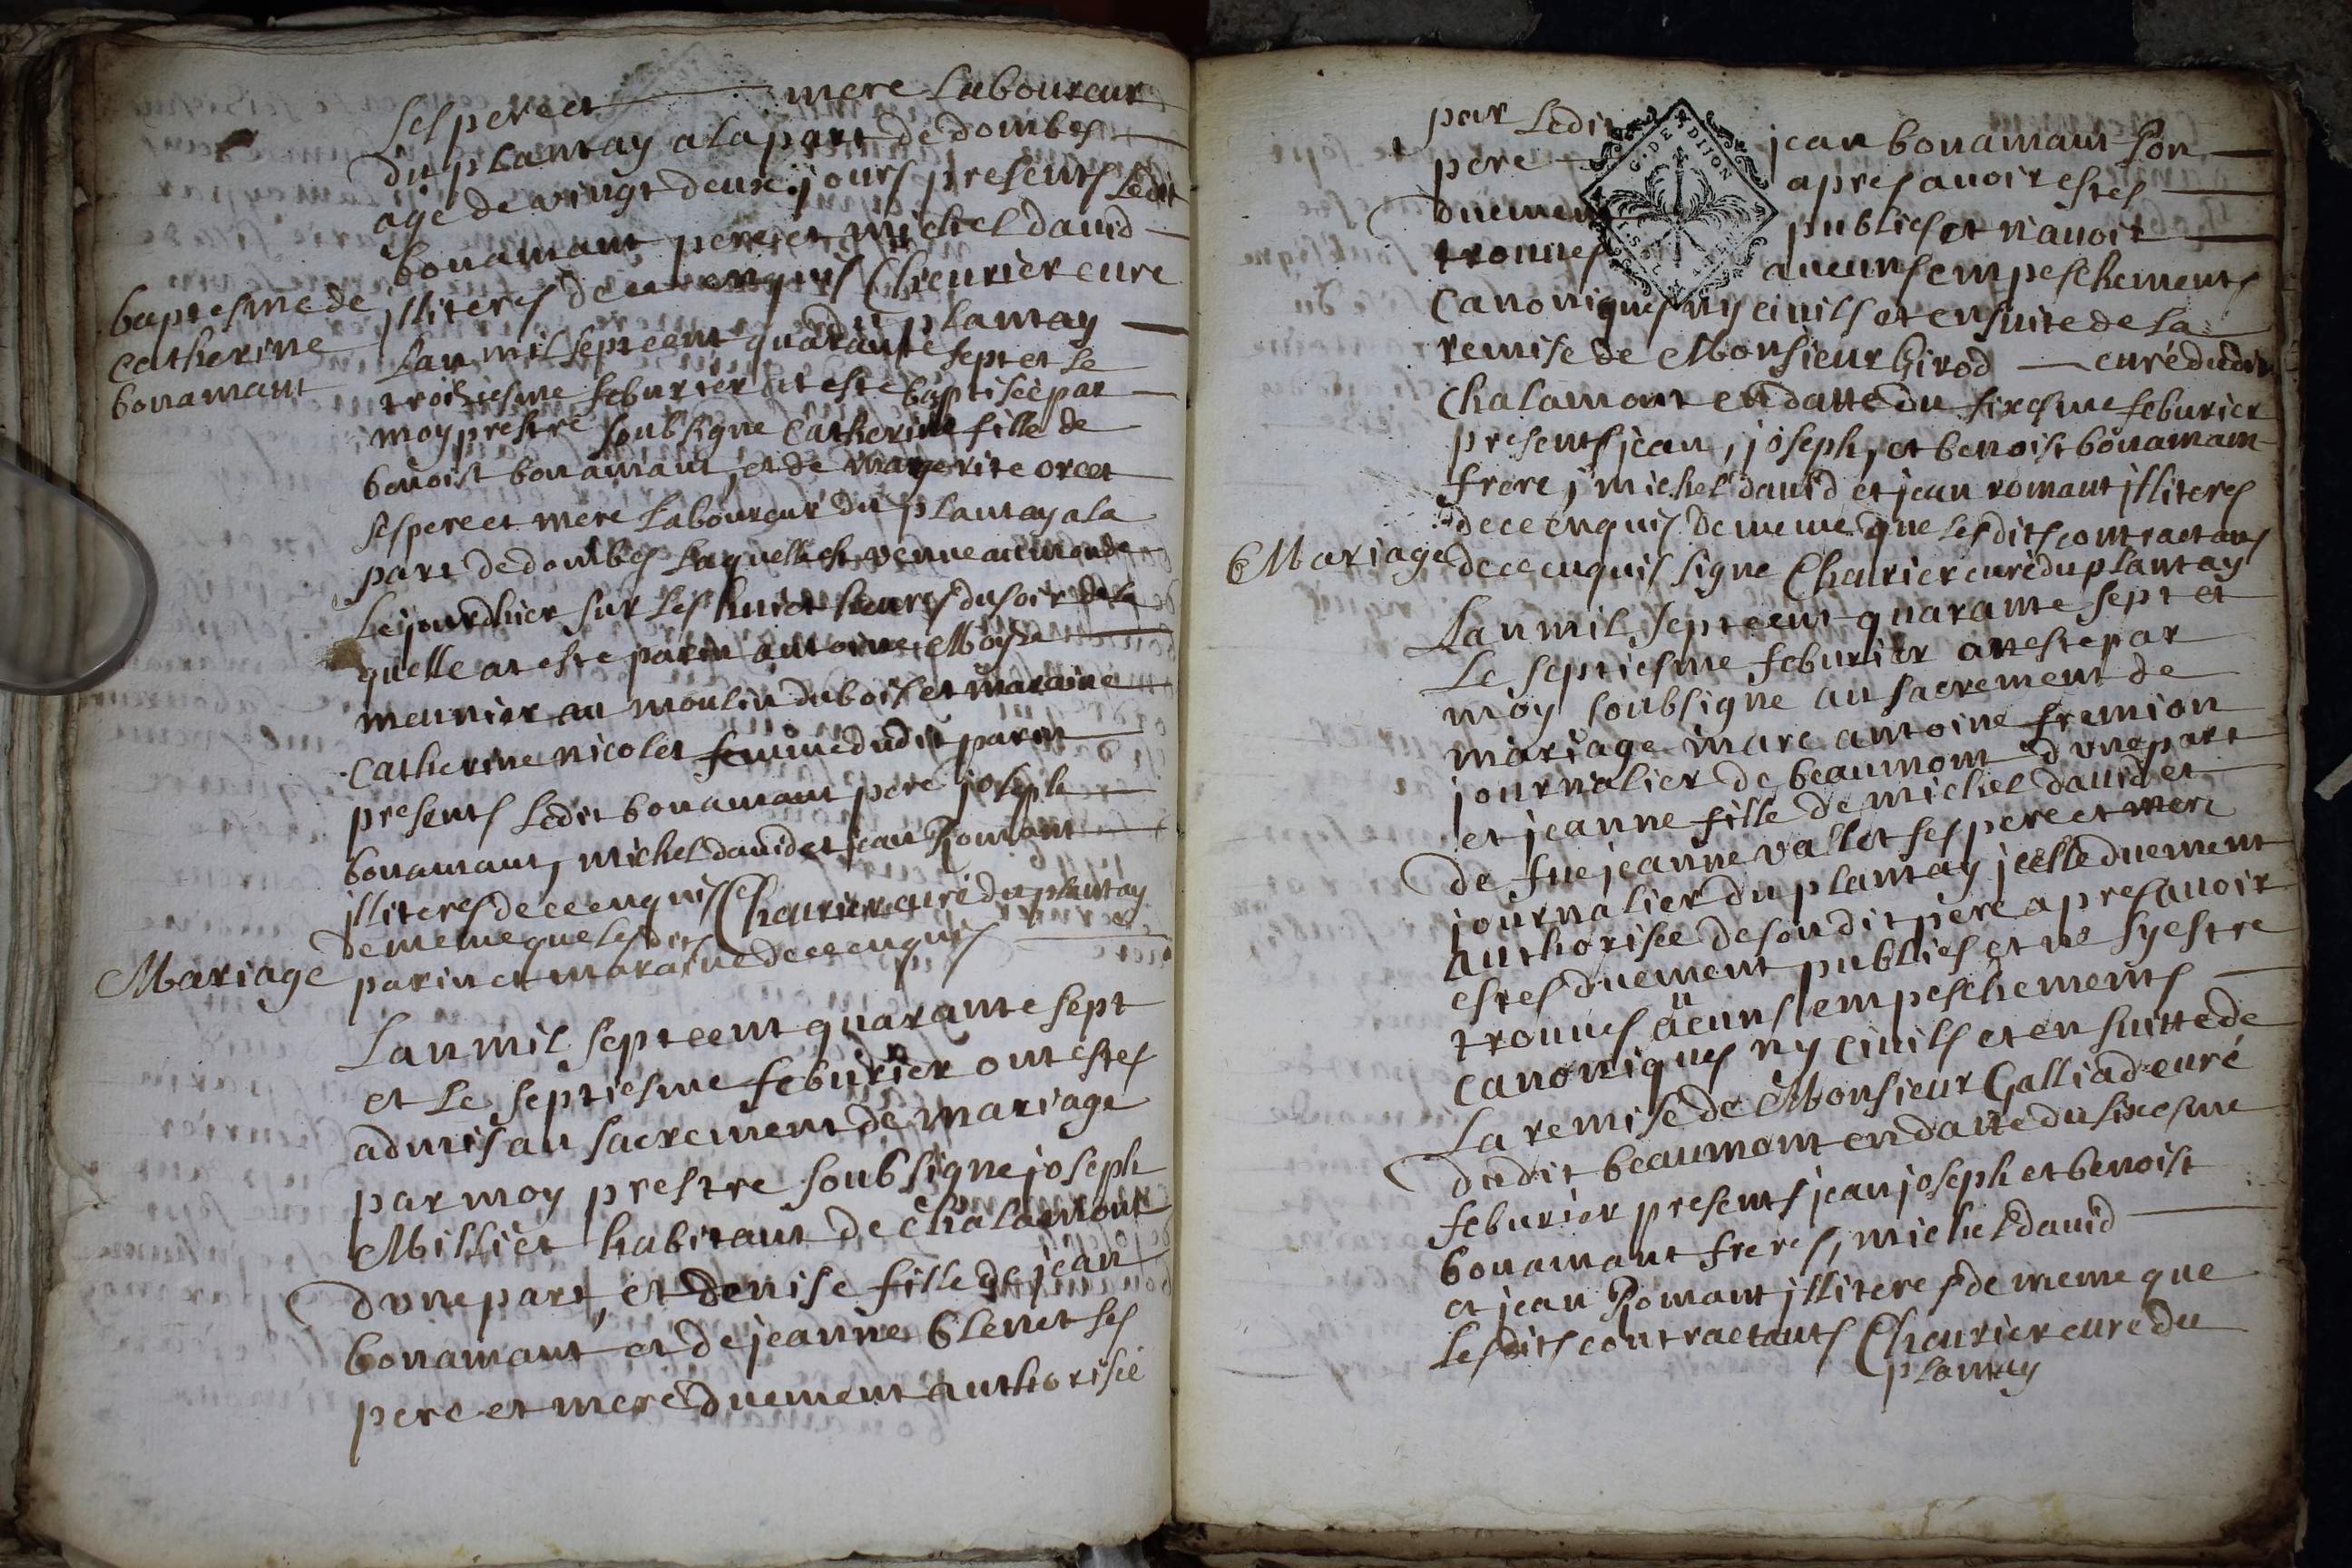 ses pere et mere laboureur
du plantay a la part de dombes
agé de vingt deux jours presents ledit
bonamant pere et michel david
illiteres de ce enquis Cheurier curé
du plantay
baptesme de
catherine
bonamant
Lan mil sept cent quarante sept et le
troisiesme feburier at esté baptiseé par
moy prestre soubsigne Catherine fille de
benoist bonamant, et de margerite orcet
ses pere et mere laboureur du plantay a la
part de dombes laquelle est venue au monde
le jourdhier sur les huict heures du soir de la
quelle at esté parin antoine Moyse
meunier au moulin du bois et maraine
Catherine nicolet femme dudit parin
presents ledit bonamant pere joseph
bonamant, michel david et jean Romant
illiteres de ce enquis Cheurier curé du plantay
de meme que lesdits
parin et maraine de ce enquis
Mariage
Lan mil sept cent quarante sept
et le septiesme feburier ont estes
admis au sacrement de mariage
par moy prestre soubsigne joseph
Milliet habitant de chalamont
dune part, et denise fille de jean
bonamant et de jeanne blenet ses
pere et mere duement authorisée
par ledit jean bonamant son
pere apres auoir estes
duement publies et n'auoir
trouues aucuns empeschements
canoniques ny ciuils et ensuite de la
remise de Monsieur Girod curé dudit
Chalamont en datte du sixesme feburier
presents jean, joseph, et benoist bonamant
frere, michel david et jean romant illiteres
de ce enquis de meme que lesdits contractans
de ce enquis signe Cheurier curé du plantay
Mariage
Lan mil sept cent quarante sept et
le septiesme feburier at esté par
moy soubsigne au sacrement de
mariage marc antoine fremion
journalier de beaumont d'une part
et jeanne fille de michel david et
de fue jeanne vallet ses pere et mere
journalier du plantay jcelle duement
authorisée de son dit pere apres auoir
estes duement publies et ne sy estre
trouues aucuns empeschements
canoniques ny ciuils et en suitte de
la remise de Monsieur Galliad curé
dudit beaumont en datte du sixesme
feburier presents jean joseph et benoist
bonamant freres, michel david
et jean Romant illiteres de meme que
lesdits contractants Cheurier curé du
plantay
G. DE DIJON